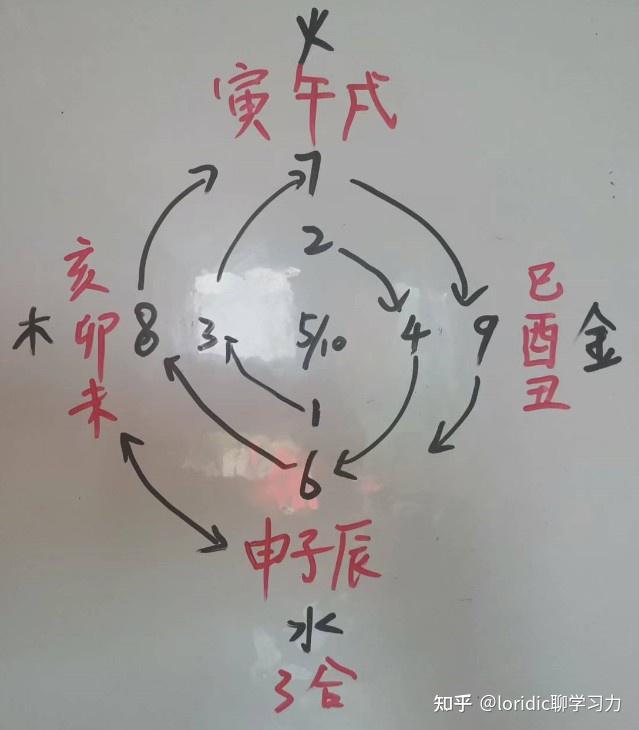 火
寅午戌
7
2
亥卯未
木
8
3
5/10
4
9
巳酉丑
金
1
6
申子辰
水
3合
知乎 @loridic聊学习力